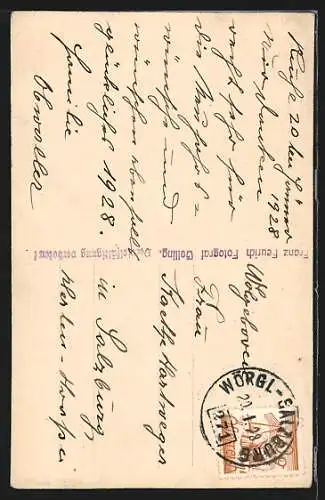 Kuchl 20 ten Jänner
1928
Wir danken
recht sehr für
die Neujahrs=
wünsche und
wünschen ebenfalls
glückliches 1928.
Familie
Franz Feurich Fotograf Golling. Vervielfältigung verboten!
Wohlgeboren
Frau
Kaethe Hartweger
in Salzburg
WÖRGL-SALZBURG